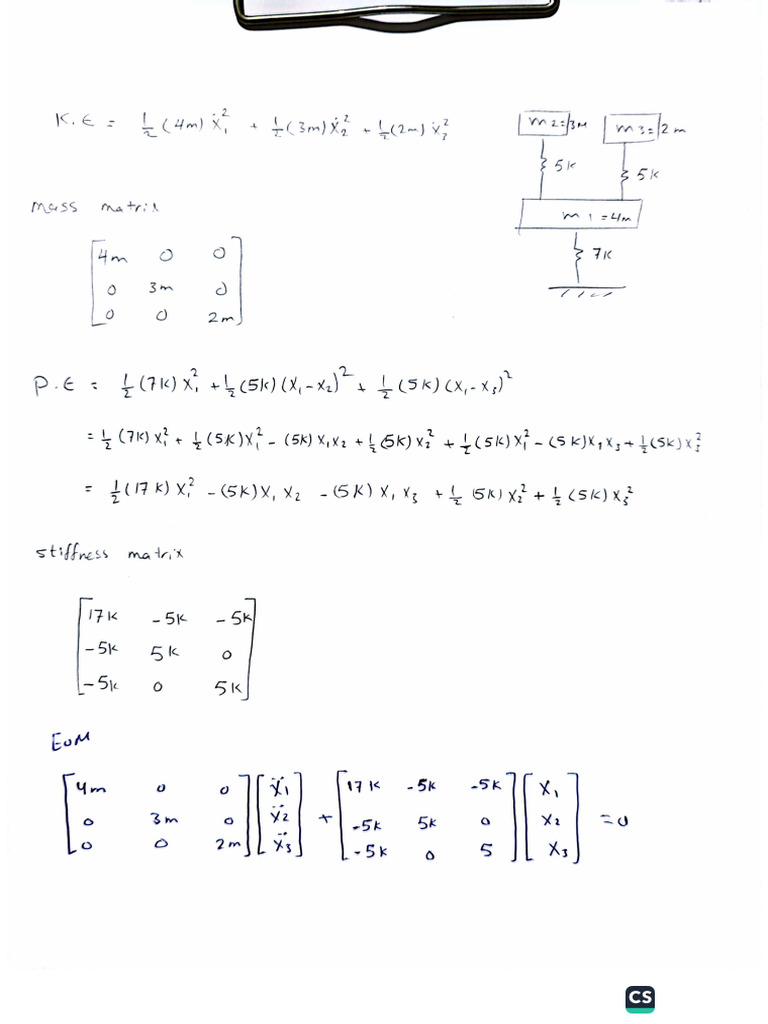 K.E = 1/2 (4m) ẋ₁² + 1/2 (3m) ẋ₂² + 1/2 (2m) ẋ₃²
m2=3M
m3=2m
5K
5K
m1=4m
7K
mass matrix
4m 0 0
0 3m 0
0 0 2m
P.E = 1/2 (7K) x₁² + 1/2 (5K) (x₁ - x₂)² + 1/2 (5K) (x₁ - x₃)²
= 1/2 (7K) x₁² + 1/2 (5K) x₁² - (5K) x₁x₂ + 1/2 (5K) x₂² + 1/2 (5K) x₁² - (5K) x₁x₃ + 1/2 (5K) x₃²
= 1/2 (17K) x₁² - (5K) x₁ x₂ - (5K) x₁ x₃ + 1/2 (5K) x₂² + 1/2 (5K) x₃²
stiffness matrix
17K -5K -5K
-5K 5K 0
-5K 0 5K
EOM
4m 0 0 ẍ1 17K -5K -5K x₁
0 3m 0 ẍ2 + -5K 5K 0 x₂ = 0
0 0 2m ẍ3 -5K 0 5 x₃
CS